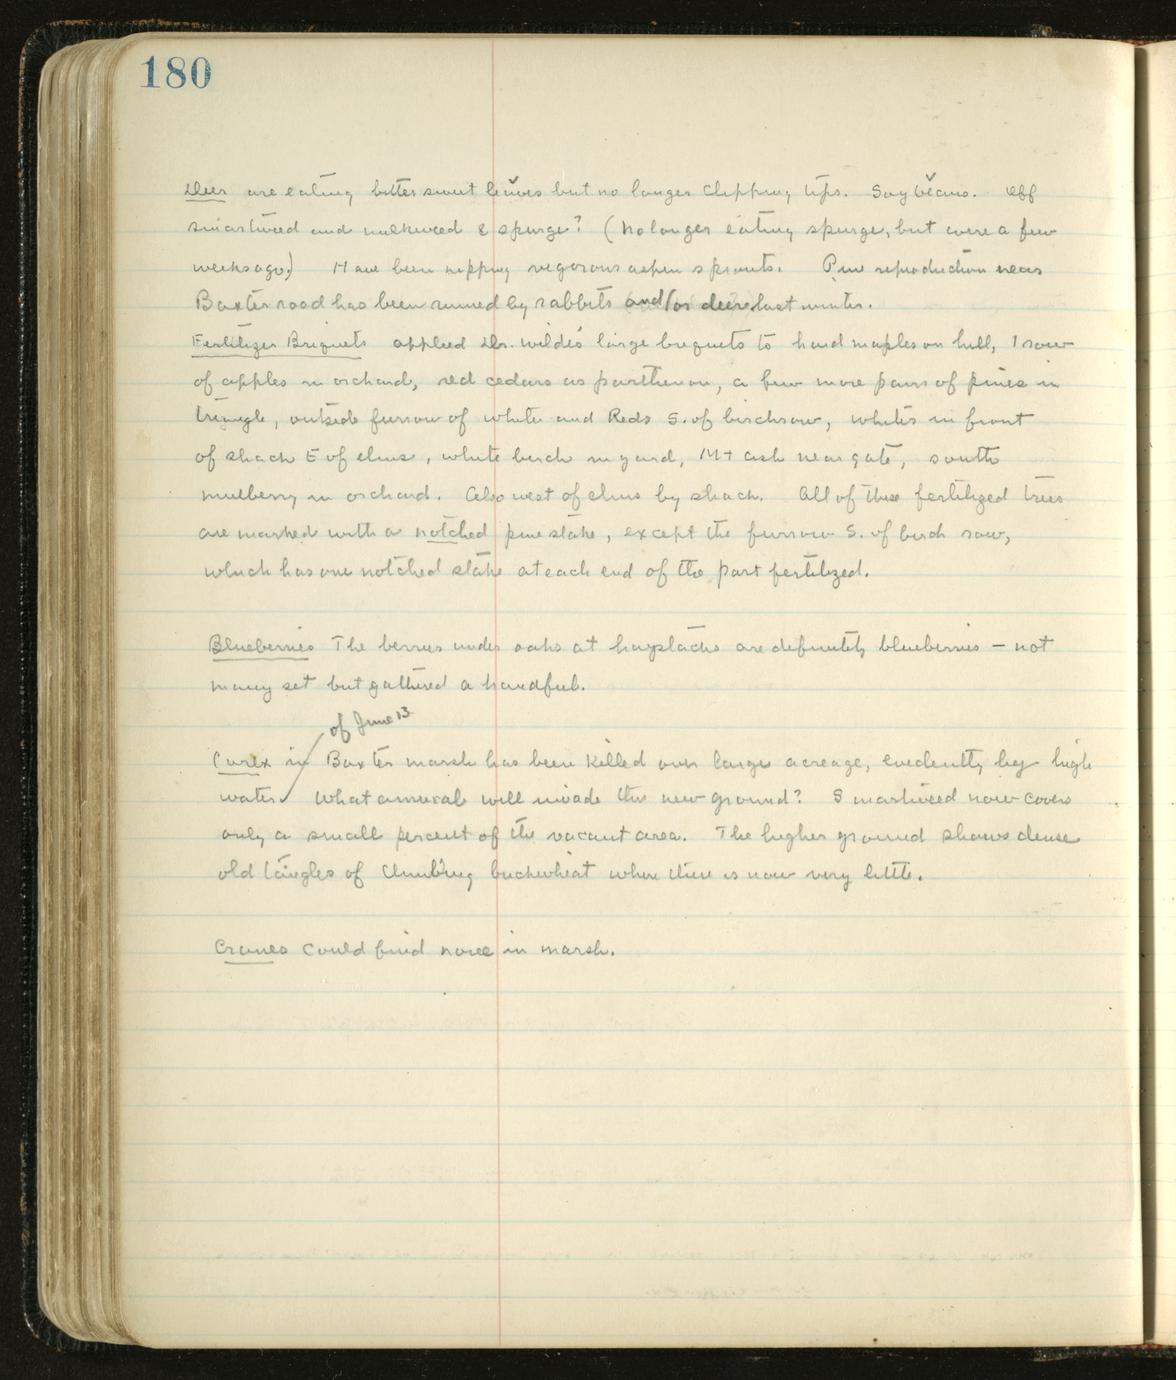 180
Deer are eating bittersweet leaves but no longer clipping tips. Soybeans. Off
smartweed and milkweed & spurge? (No longer eating spurge, but were a few
weeks ago) Have been nipping vigorous aspen sprouts. Pine reproduction near
Baxter road has been ruined by rabbits and/or deer last winter.
Fertilizer Briquets applied Dr. Wilde's large briquets to hard maples on hill, 1 row
of apples in orchard, red cedars as parthenon, a few more pairs of pines in
triangle, outside furrow of white and Reds S. of birchrow, whites in front
of shack E of elms, white birch in yard, Mt ash near gate, south
mulberry in orchard. Also west of elms by shack. All of these fertilized trees
are marked with a notched pine stake, except the furrow S. of birch row,
which has one notched stake at each end of the part fertilized.
Blueberries The berries under oaks at haystacks are definitely blueberries – not
many set but gathered a handful.
of June 13
Carex in Baxter marsh has been killed over large acreage, evidently by high
water. What annual will invade this new ground? Smartweed now covers
only a small percent of the vacant area. The higher ground shows dense
old tangles of climbing buckwheat where there is now very little.
Cranes Could find none in marsh.